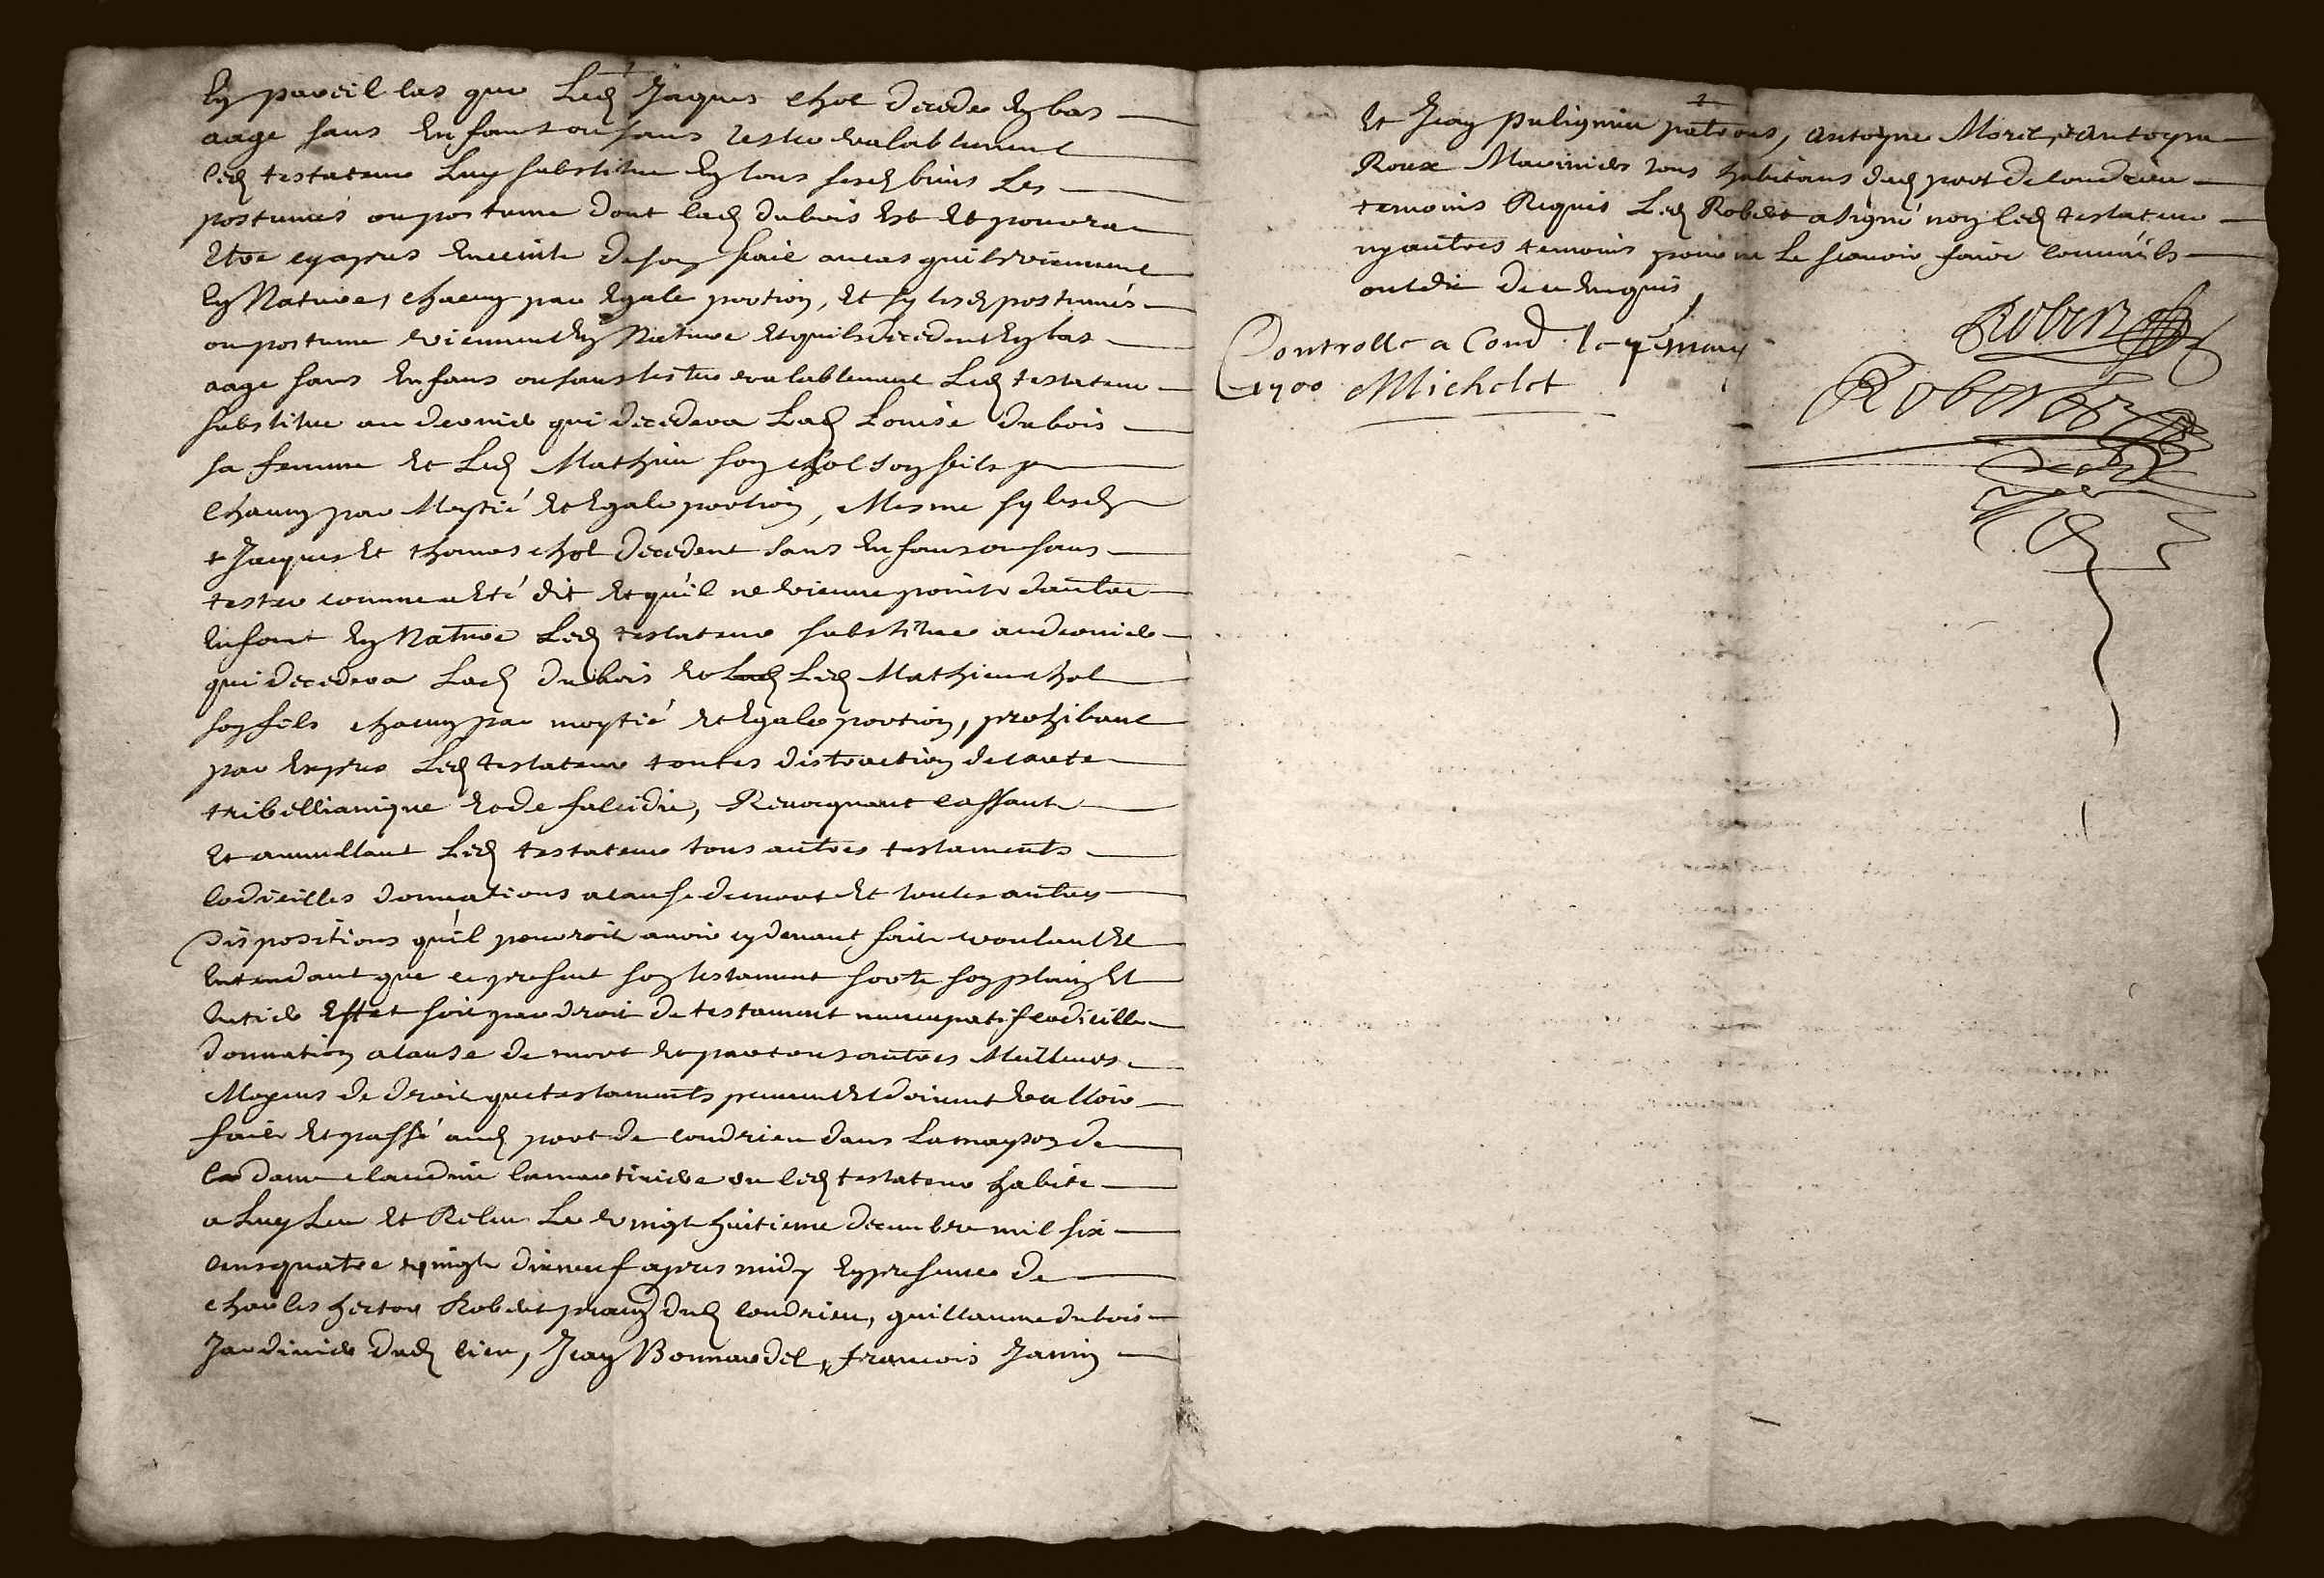 En pareil cas que Led Jaques chol decede en bas
aage sans enfans ou sans tester valablement
led testateur Luy substitue en tous sesd biens Les
postumes ou postume dont lad dubois est et pourra
Etre cyapres enceinte de son fait aucas quils viennent
En Nature, chacun par Egale portion, Et sy lesd postumes
ou postume viennent En Nature et quils decedent En bas
aage sans Enfans ou sans tester valablement Led testateur
substitue au dernier qui decedera Lad Louise dubois
sa femme et Led Mathieu son chol son fils
chacun par Moytié et Egale portion, Mesme sy lesd
+ Jacques et thomas chol decedent sans Enfans ou sans
tester comme a eté dit et qu'il ne vienne point d'autre
Enfant En Nature Led testateur substitue au dernier
qui decedera Lad dubois et Lad Led Mathieu chol
son fils chacun par moytié et Egale portion, prohibant
par Expres Led testateur toutes distraction de carte
tribellianique et de falcidie, Revocquant cassant
Et annullant Led testateur tous autres testaments
Codicilles donnations a cause de mort Et toutes autres
Dispositions qu'il pourroit avoir cydevant fait voulant Et
Entendant que ce present son testament sorte son plain Et
Entier Effet soit par droit de testament nuncupatif codicille
donnation a cause de mort et par tous autres Meilleurs
Moyens de droit que testaments peuvent Et doivent valloir
fait Et passé aud port de condrieu dans La mayson de
dame claudine lamartiniere ou led testateur habite
a Luy Leu Et Releu Le vingt huitieme decembre mil six
cens quatre vingt dixneuf apres midy En presence de
charles hector Robert pratn dud condrieu, guillaume dubois
Jardinier dud lieu, Jean Bonnardel, francois Janin
Et Jean pulignieu patrons, antoyne Morel, et antoyne
Roux Mariniers tous habitans dud port de condrieu
temoins Requis Led Robert a signé non led testateur
ny autres temoins pour ne Le scavoir faire comm'ils
ont dit deu Enquis
Controlle a Cond. le 7e
1700 Michelet
Robert
Robert